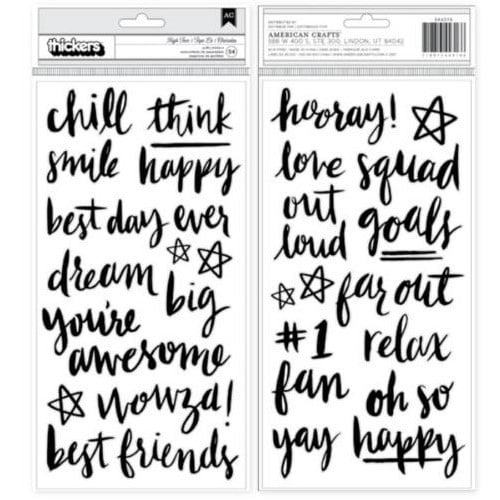 AC
thickers
54
chill think
smile happy
best day ever
dream
big
you're
awesome
wowza!
best friends
AMERICAN CRAFTS
588 W 400 S, STE 300, LINDON, UT 84042
hooray!
love squad
out goals
loud
far out
#1 relax
fan oh so
yay happy